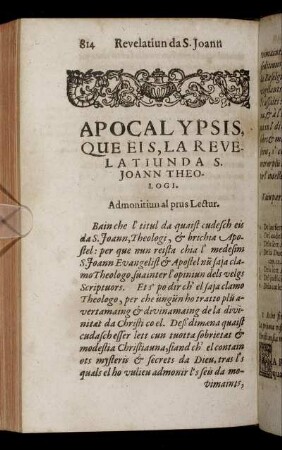 814 Revelatiun da S. Joann
APOCALYPSIS,
QUE EIS, LA REVE-
LATIUN DA S.
JOANN THEO-
LOGI.
Admonitiun al prus Lectur.
Bain che l' titul da quaist cudesch eis
da S. Joann, Theologi, & brichia Apo-
stel: per que nun reista chia l' medesim
S. Joann Evangelist & Apostel nũ saja cla-
mo Theologo, suainter l' opiniun dels velgs
Scriptuors. Et s' po dir ch' el saja clamo
Theologo, per che üngün ho tratto plü a-
vertamaing & devinamaing de la divi-
nitad da Christi co el. Desʒ dimena quaist
cudasch esser lett cun tuotta sobrietat &
modestia Christiauna, siand ch' el contain
ots mysteris & secrets da Dieu, tras l's
quals el ho vulieu admonir l's seis da mo-
vimaints,